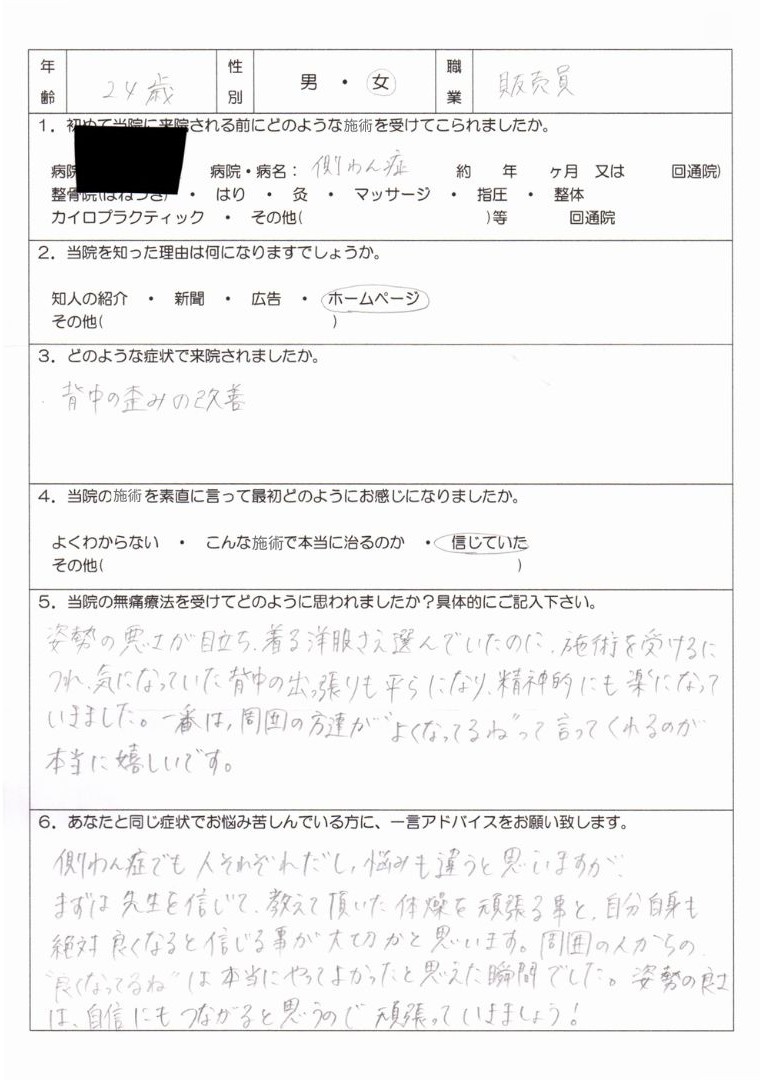 年齢 24歳 性別 男 ・ 女 職業 販売員
1．初めて当院に来院される前にどのような施術を受けてこられましたか。
病院 病院・病名： 側わん症 約 年 ヶ月 又は 回通院)
整骨院(ほねつぎ) ・ はり ・ 灸 ・ マッサージ ・ 指圧 ・ 整体
カイロプラクティック ・ その他( )等 回通院
2．当院を知った理由は何になりますでしょうか。
知人の紹介 ・ 新聞 ・ 広告 ・ ホームページ
その他( )
3．どのような症状で来院されましたか。
・背中の歪みの改善
4．当院の施術を素直に言って最初どのようにお感じになりましたか。
よくわからない ・ こんな施術で本当に治るのか ・ 信じていた
その他( )
5．当院の無痛療法を受けてどのように思われましたか？具体的にご記入下さい。
姿勢の悪さが目立ち、着る洋服さえ選んでいたのに、施術を受けるに
つれ、気になっていた背中の出っ張りも平らになり、精神的にも楽になって
いきました。一番は、周囲の方達が"よくなってるね"って言ってくれるのが
本当に嬉しいです。
6．あなたと同じ症状でお悩み苦しんでいる方に、一言アドバイスをお願い致します。
側わん症でも人それぞれだし、悩みも違うと思いますが、
まずは先生を信じて、教えて頂いた体燥を頑張る事と、自分自身も
絶対良くなると信じる事が大切かと思います。周囲の人からの、
"良くなってるね"は本当にやってよかったと思えた瞬間でした。姿勢の良さ
は、自信にもつながると思うので頑張っていきましょう！